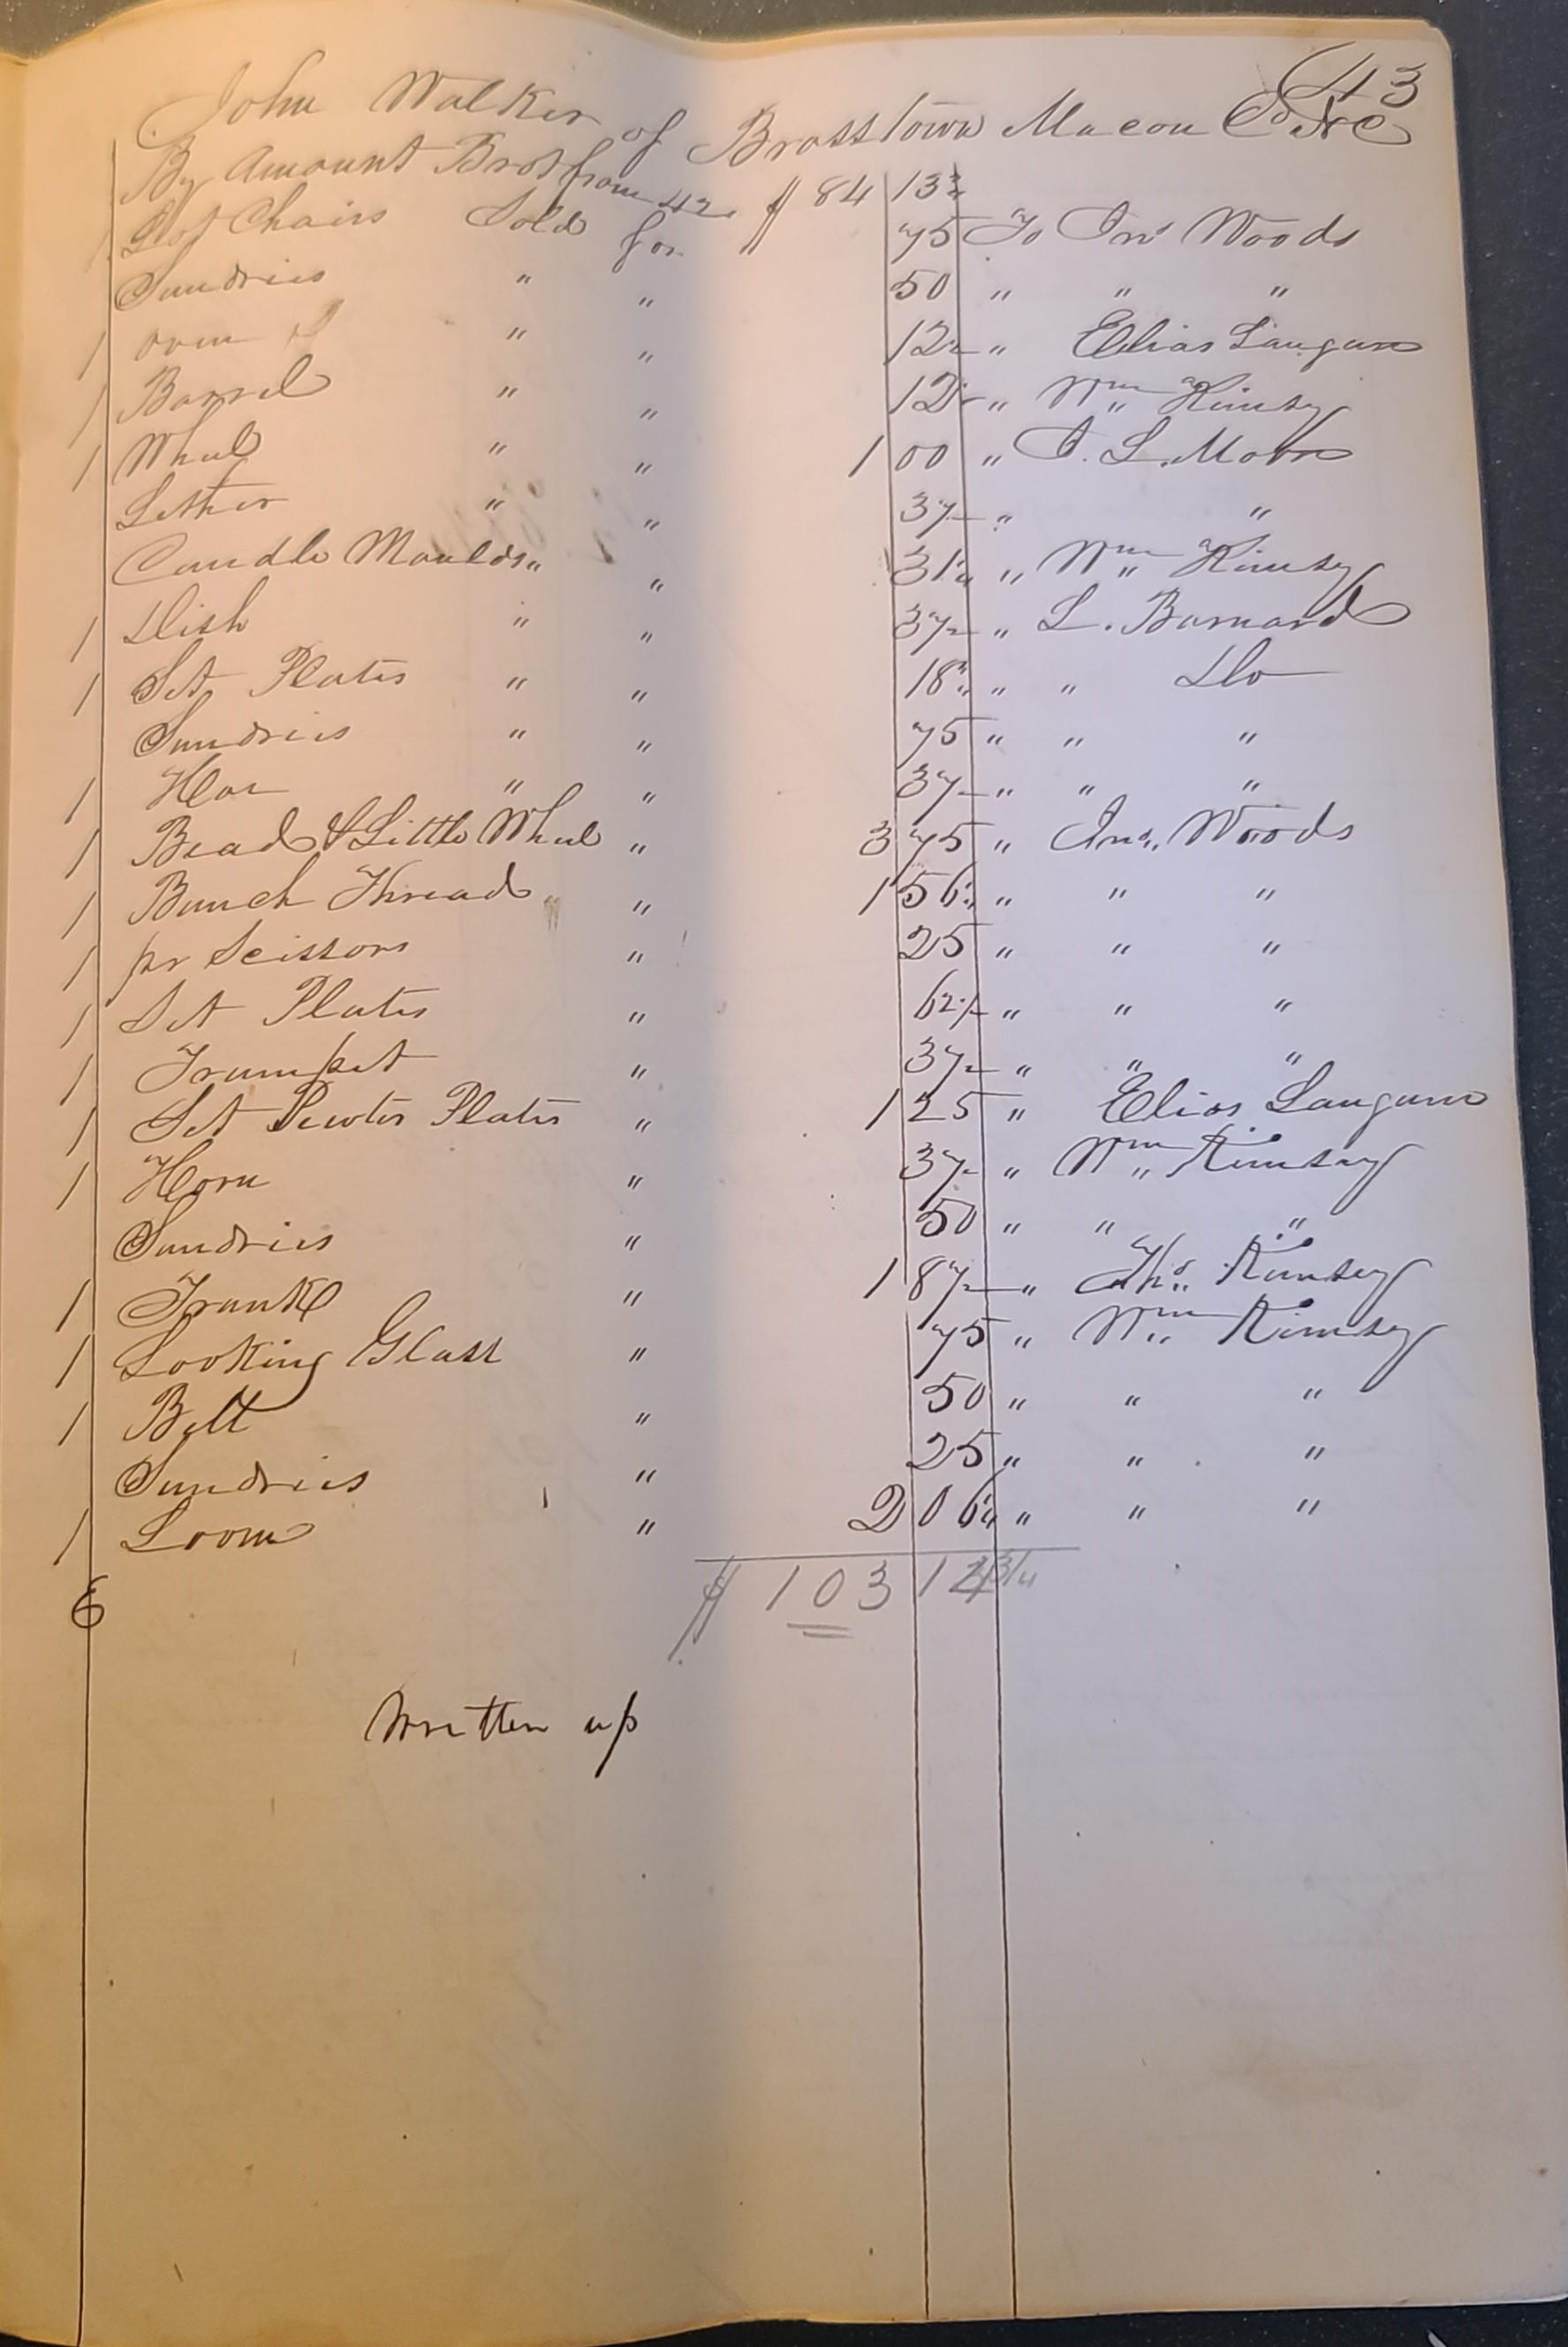 43
John Walker of Brasstown Macon Co NC
By Amount Brot from 42. $ 84 13 3/4
1 Lot Chairs Sold for 75 To Jno Woods
Sundries " " 50 " " "
1 oven " " 12 1/2 " Elias Langum
1 Barrel " " 12 1/2 " Wm Kimsey
1 Wheel " " 1 00 " J. L. Moore
Lether " " 37 1/2 " "
Candle Moulds " " 31 1/4 " Wm Kimsey
1 Dish " " 37 1/2 " L. Barnard
1 Set Plates " " 18 3/4 " " Do
Sundries " " 75 " " "
1 Hoe " " 37 1/2 " " "
1 Bead & Little Wheel " 3 75 " Jno. Woods
1 Bunch Thread " " 1 56 1/4 " " "
1 pr Scissors " 25 " " "
1 Set Plates " 62 1/2 " " "
1 Trumpet " 37 1/2 " " "
1 Set Pewter Plates " 1 25 " Elias Langum
1 Horn " 37 1/2 " Wm Kimsey
Sundries " 50 " " "
1 Trunk " 1 87 1/2 " Thos Kimsey
1 Looking Glass " 75 " Wm Kimsey
1 Bell " 50 " " "
Sundries " 25 " " "
1 Loom " 2 06 1/4 " " "
$ 103 12 3/4
Written up